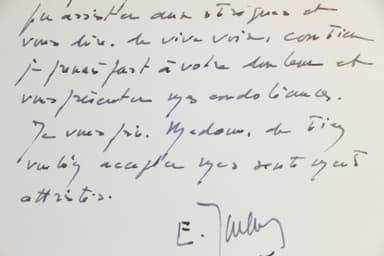 pu assister aux obsèques et
vous dire, de vive voix, combien
je prends part à votre douleur et
vous présenter mes condoléances.
Je vous prie, Madame, de bien
vouloir accepter mes sentiments
attristés.
E.